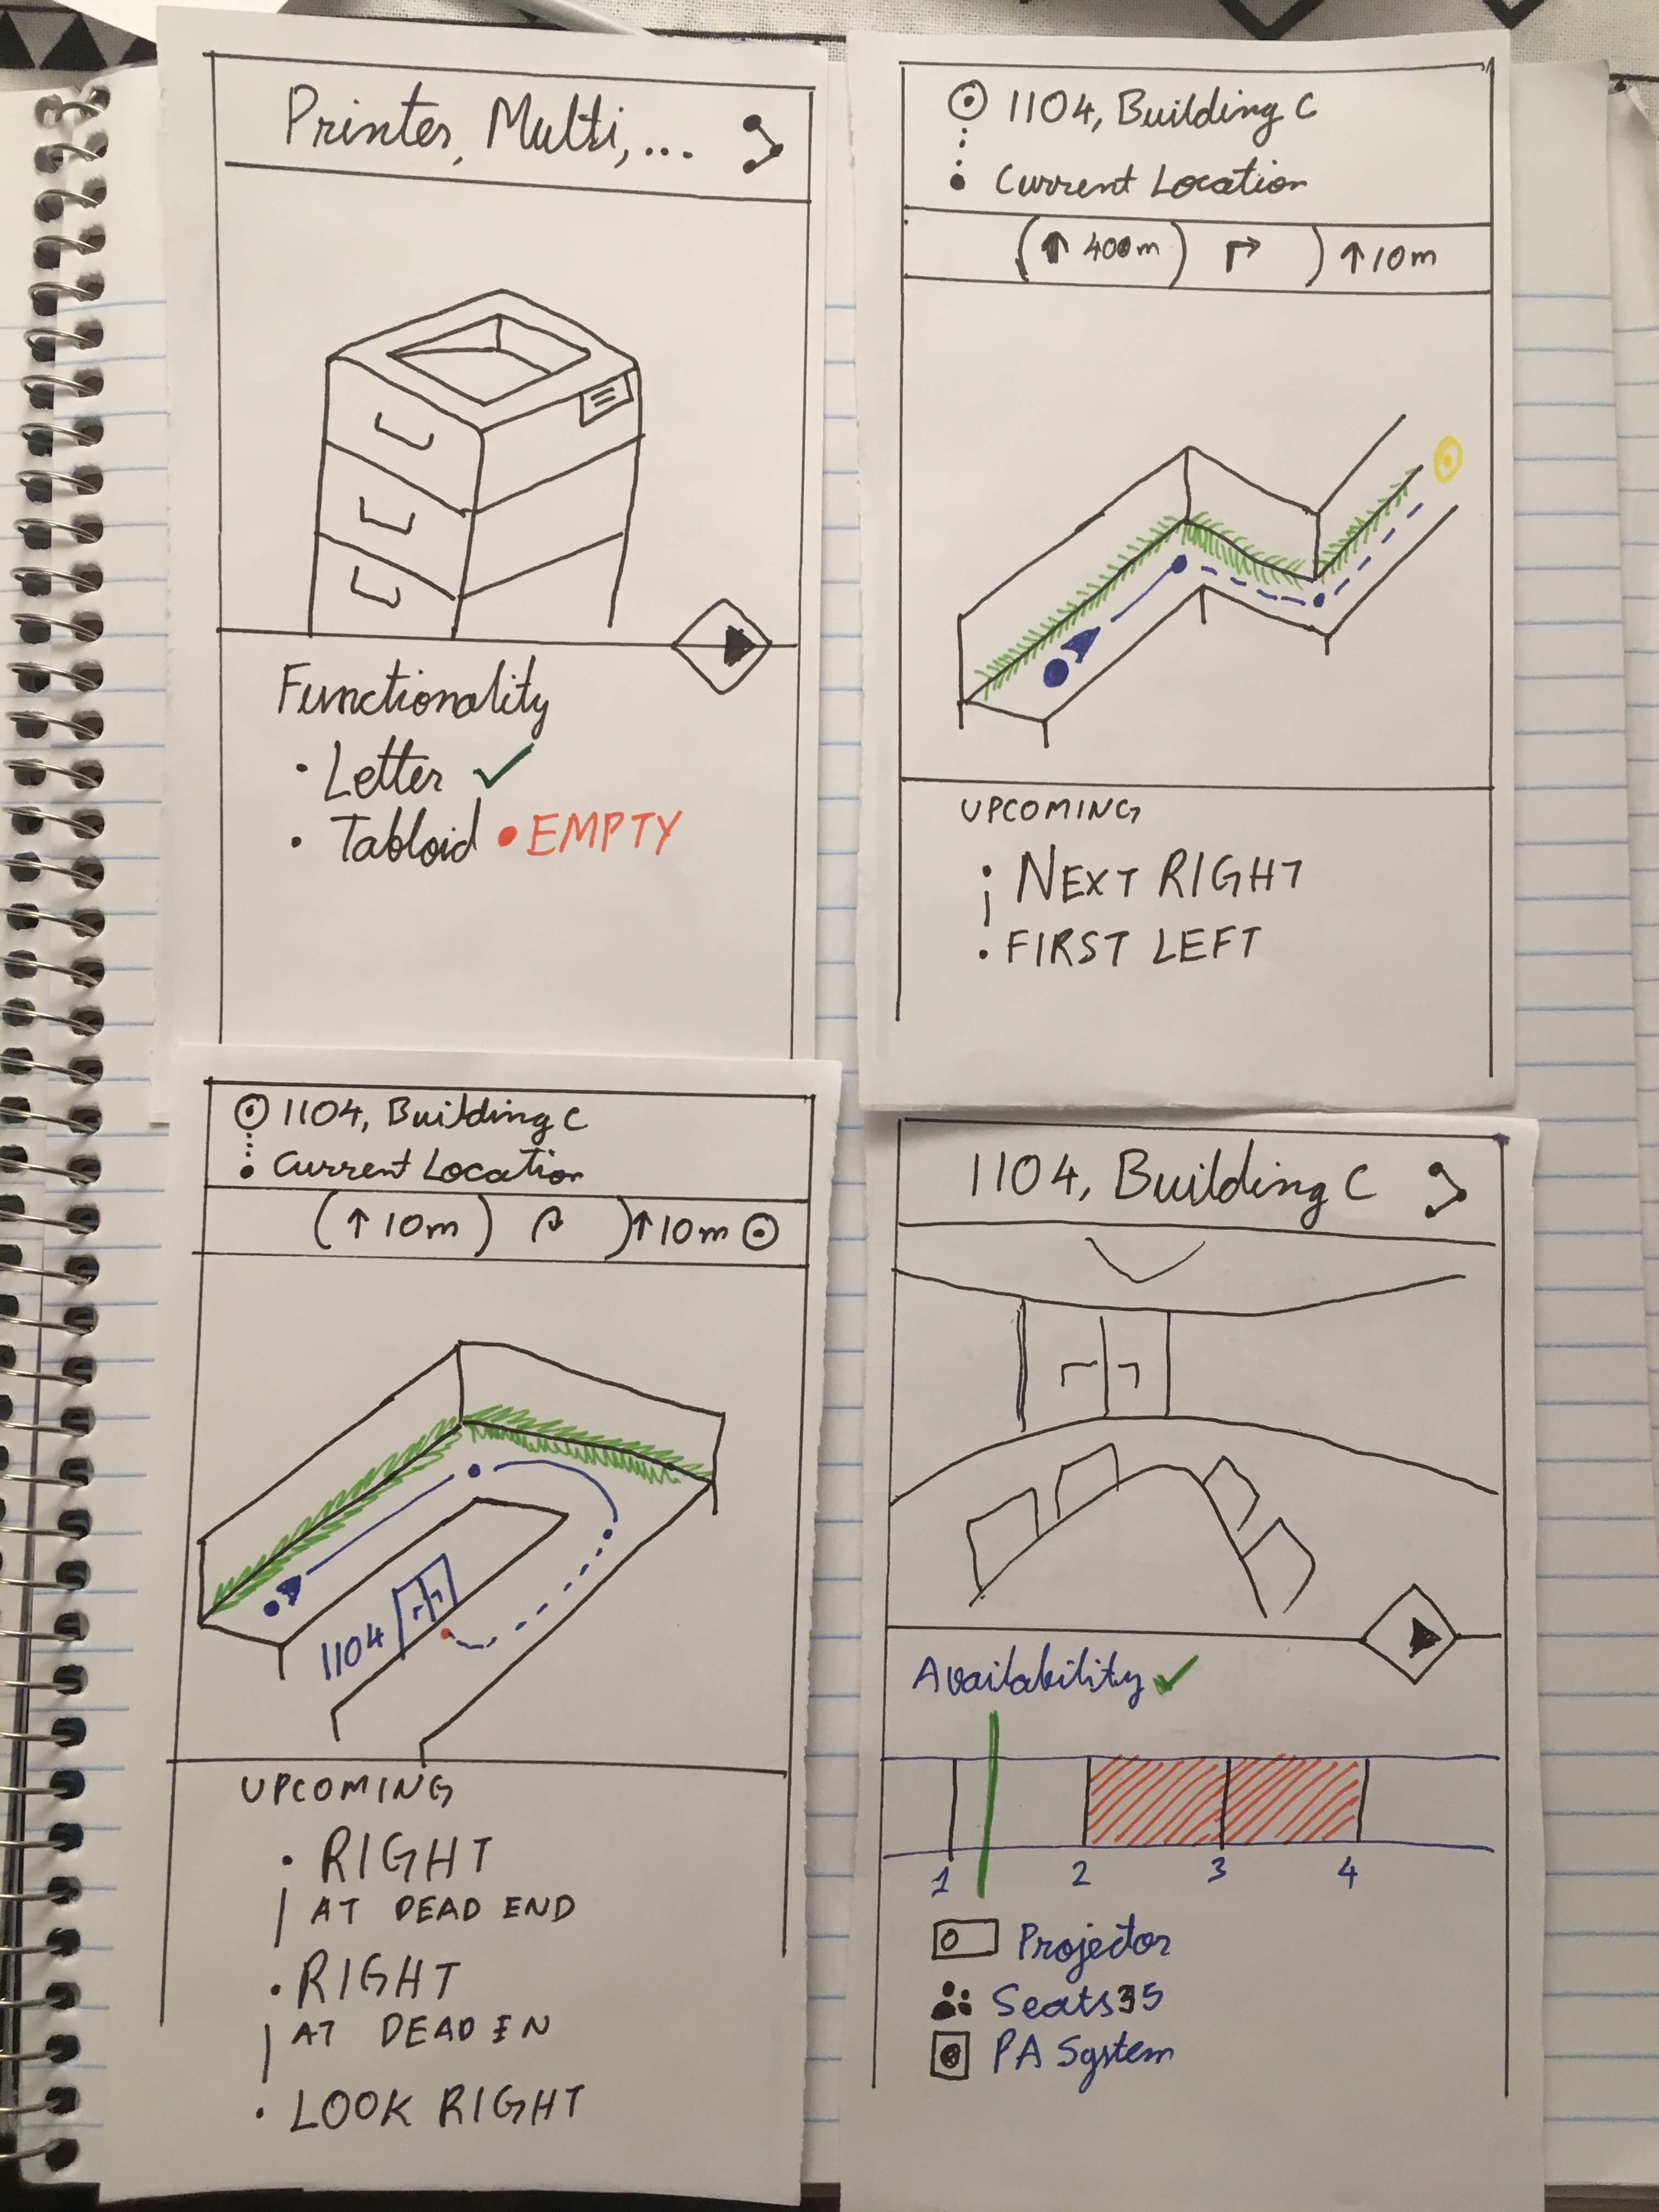 Printer, Multi, ...
Functionality
• Letter ✓
• Tabloid • EMPTY
1104, Building C
Current Location
(↑ 400m) ↱ ) ↑ 10m
UPCOMING
NEXT RIGHT
• FIRST LEFT
1104, Building C
Current Location
(↑ 10m) ) ↑ 10m
1104
UPCOMING
• RIGHT
AT DEAD END
• RIGHT
AT DEAD EN
• LOOK RIGHT
1104, Building C
Availability ✓
1 2 3 4
Projector
Seats 35
PA System